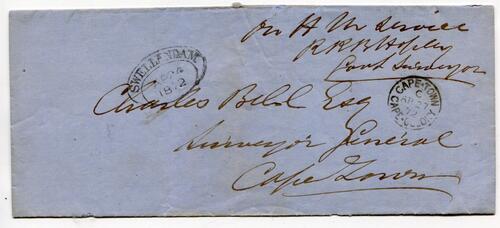 On H M Service
Govt Surveyor
SWELLENDAM
1872
CAPE-TOWN
CAPE-COLONY
Charles Bell Esq
Surveyor General
Cape Town